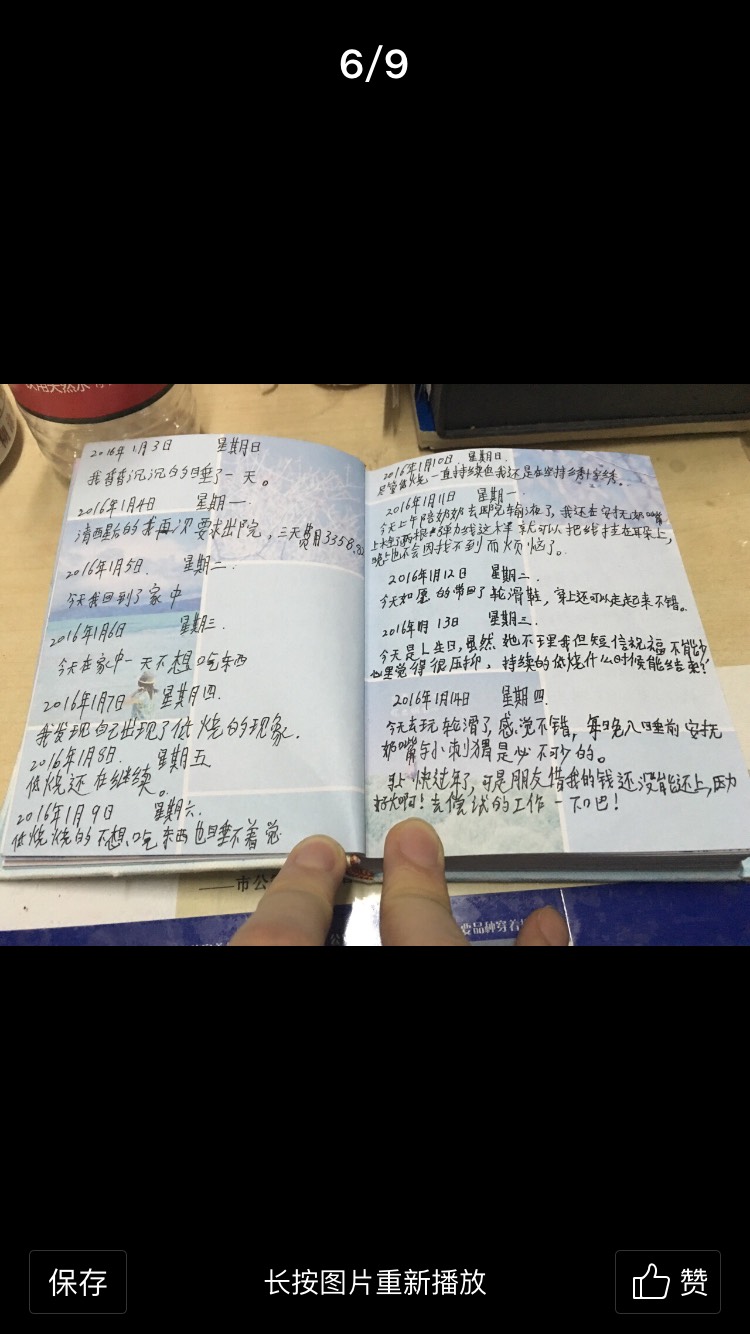 6/9
2016年1月3日 星期日
我昏昏沉沉的睡了一天。
2016年1月4日 星期一.
清醒后的我再次要求出院，三天费用3358.
2016年1月5日. 星期二.
今天我回到了家中
2016年1月6日 星期三.
今天在家中一天不想吃东西
2016年1月7日 星期四.
我发现自己出现了低烧的现象.
2016年1月8日. 星期五
低烧还在继续。
2016年1月9日 星期六.
低烧烧的不想吃东西也睡不着觉
2016年1月10日. 星期日.
尽管低烧一直持续也我还是在坚持绣十字绣。
2016年1月11日 星期一
今天上午陪奶奶去医院输液了，我还在安抚奶嘴
上栓了两根弹力线这样就可以把线挂在耳朵上，
晚上也不会因找不到而烦恼了。
2016年1月12日 星期二.
今天如愿的带回了轮滑鞋，穿上还可以走起来不错。
2016年1月13日 星期三.
今天是上生日，虽然她不理我但短信祝福不能少
心里觉得很压抑，持续的低烧什么时候能结束？
2016年1月14日 星期四.
今天去玩轮滑了，感觉不错，每晚入睡前安抚
奶嘴与小刺猬是必不可少的。
马上快过年了，可是朋友借我的钱还没能还上，压力
好大啊！去尝试的工作一下吧！
市公
要品种穿着
保存
长按图片重新播放
赞